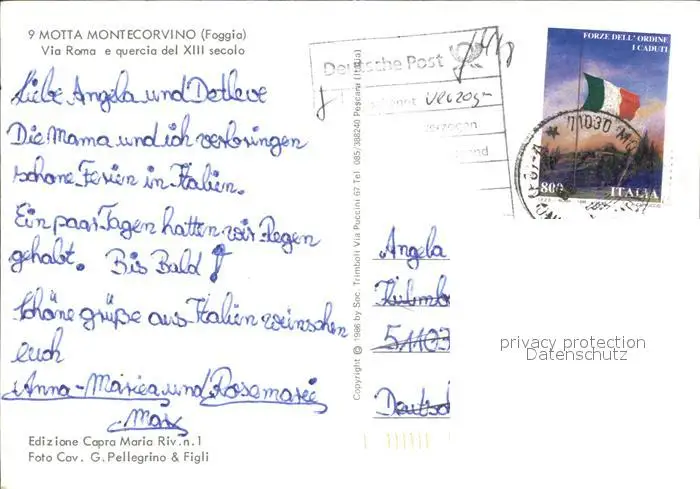 9 MOTTA MONTECORVINO (Foggia)
Via Roma e quercia del XIII secolo
Liebe Angela und Detleve
Die Mama und ich verbringen
schöne Ferien in Italien.
Ein paar Tagen hatten wir Regen
gehabt. Bis Bald!
Schöne grüße aus Italien wünschen
euch
Anna-Maria und Rosemarie
Max
Edizione Capra Maria Riv. n. 1
Foto Cav. G. Pellegrino & Figli
Copyright © 1986 by Soc. Trimboli Via Puccini 67 Tel. 085/388240 Pescara (Italia)
Deutsche Post
verzogen
FORZE DELL'ORDINE
I CADUTI
800 ITALIA
71030
Angela
51103
privacy protection
Datenschutz